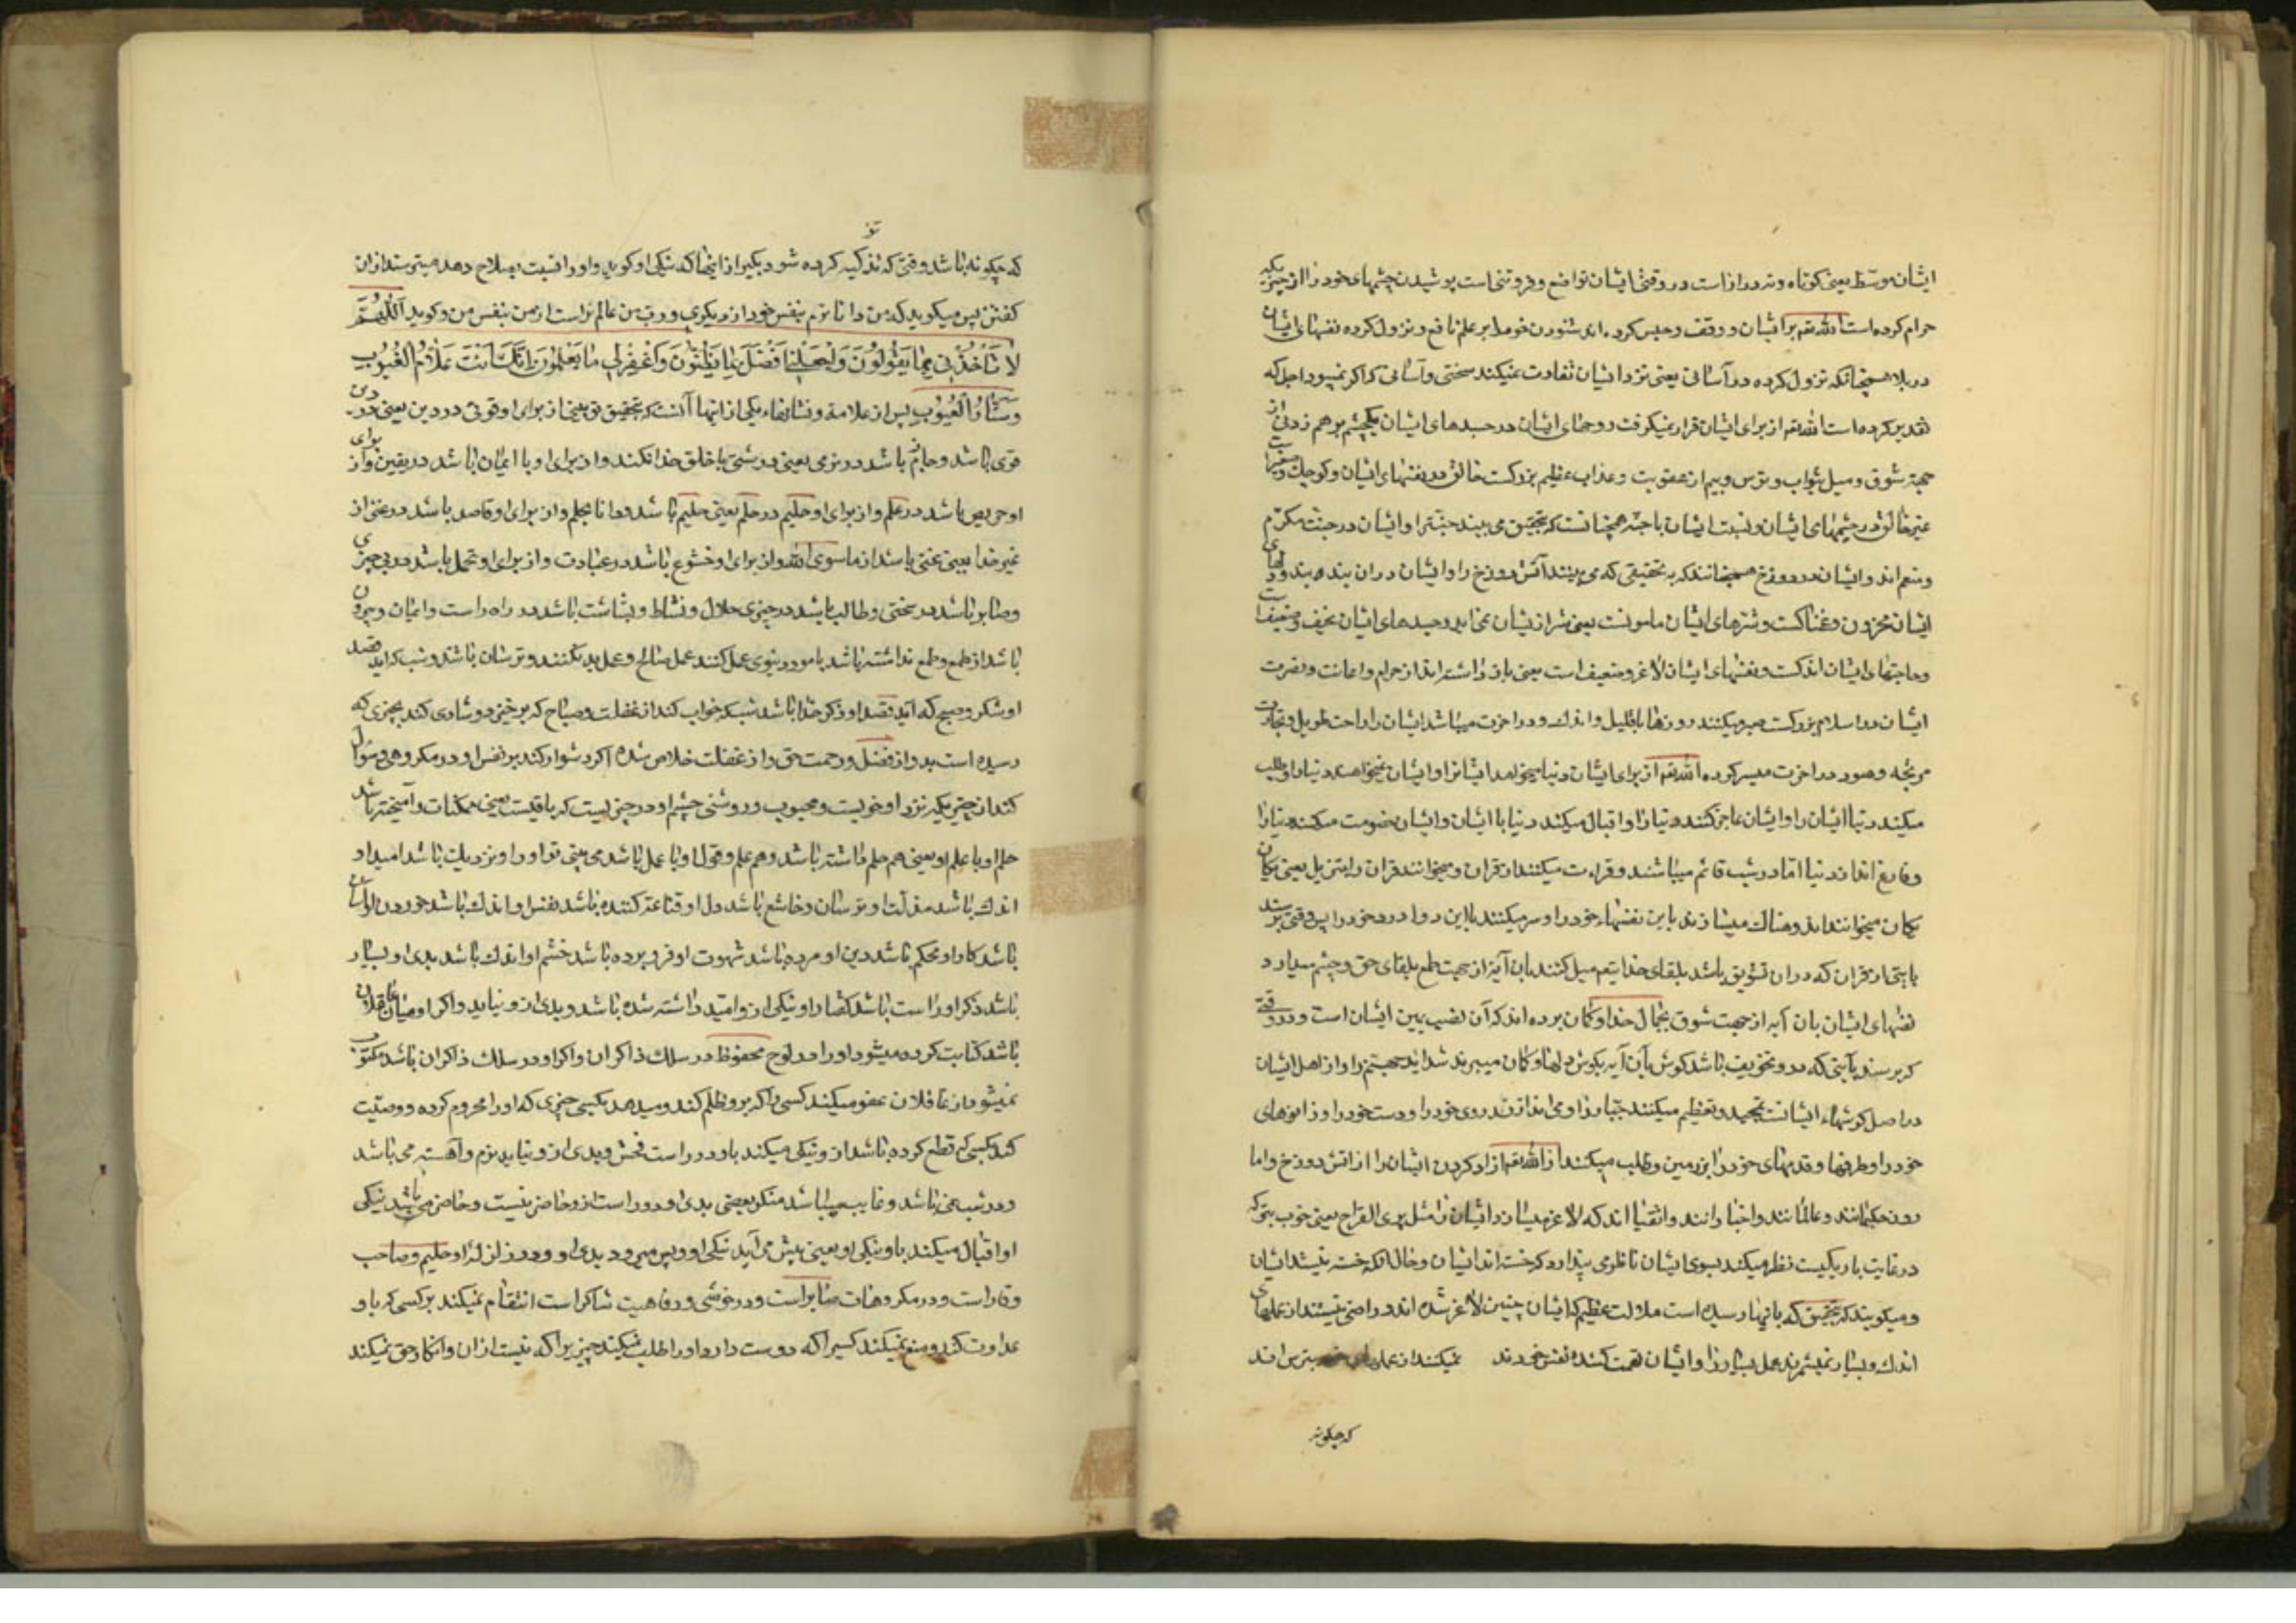 ایشان موسّط یعنی کوتاه و نه دراز است در وقتی ایشان تواضع و فروتنی است پوشیدن چشمهای خود را از چیزیکه
حرام کرده است الله تعم بر ایشان و وقف و حبس کرده اند شنودن خود را بر علم نافع و نزول کرده نفسهای ایشان
در بلا همچنانکه نزول کرده در آسانی یعنی نزد ایشان تفاوت نمیکند سختی و آسانی که اگر نمیبود اجل که
تقدیر کرده است الله تعم از برای ایشان قرار نمیگرفت روحهای ایشان در جسدهای ایشان یکچشم بر هم زدنی از
جهة شوق و میل ثواب و ترس و بیم از عقوبت و عذاب عظیم بزرگست خالق در نفسهای ایشان و کوچک و
غیر خالق در چشمهای ایشان و نسبت ایشان با جنّة همچنانست که بتحقیق می بینند جنّترا و ایشان در جنّت مکرّم
و منعم اند و ایشان در دوزخ همچنانند که به تحقیقی که می بینند آتش دوزخ را و ایشان در آن بنده بند و دلهای
ایشان محزون و غمناکست و شرّهای ایشان مامونست یعنی شر از ایشان نمی آید و جسدهای ایشان نحیف و ضعیف است
و حاجتهای ایشان اندکست و نفسهای ایشان لاغر و ضعیف است یعنی باز داشته اند از حرام و اعانت و نصرت
ایشان در اسلام بزرگست صبر میکنند روزهای قلیل و اندک و در اخرت میباشد ایشان را راحت طویل و تجارت
مربحه و سود در اخرت میسر کرده الله تعم از برای ایشان دنیا میخواهد ایشانرا و ایشان نمیخواهند دنیا را و طلب
میکند دنیا ایشان را و ایشان عاجز کنند دنیا را و اقبال میکند دنیا با ایشان و ایشان خصومت میکنند دنیا را
و فارغ اند از دنیا امّا در شب قائم میباشند و قراءت میکنند از قران و میخوانند قران را بتنزیل یعنی یکان
یکان میخوانند اند و هناک میسازند باین نفسهاء خود را و سر میکنند باین دوا درد خود را پس وقتی برسند
بایتی از قران که در آن تشویق باشد بلقای خدایتعم میل کنند بآن آیه از جهت طمع بلقای حق و چشم میدارد
نفسهای ایشان بآن آیه از جهت شوق بجمال خدا و گمان برده اند که آن نصب بین ایشان است و در وقتی
که برسند بآیتی که در و تخویف باشد گوش بآن آیه بگوش دلها و گمان میبرند شداید جهنّم را و از اهل ایشان
در اصل گوشهاء ایشانست تمجید و تعظیم میکنند جبّار را و می اندازند روی خود را و دست خود را و زانوهای
خود را و طرفها و قدمهای خود را بر زمین و طلب میکنند از الله تعم ازاد کردن ایشان را از اتش دوزخ و اما
روز حکیمانند و عالمانند و اخیارانند و اتقیااند که لاغر میسازد ایشان را مثل بری القراح یعنی چوب تیر که
در غایت باریکیست نظر میکند بسوی ایشان ناظری پندارد که خسته اند ایشان و حال آنکه خسته نیستند ایشان
و میگویند که بتحقیق که بآنها رسیده است ملالت عظیم که ایشان چنین لاغر شده اند و راضی نیستند از عملهای
اندک و بسیار نمیشمرند عمل بسیار را و ایشان تهمت کننده نفس خودند نمیکنند از عملهای خود بترس اند
که چگونه
که چگونه باشد وقتی که تزکیه کرده شود یکی از اینها که نیکی او گوید و او را نسبت بصلاح دهد میترسند از آن
گفتن پس میگوید که من دانا ترم بنفس خود از دیگری و رب من عالم تر است از من بنفس من و گوید اَللّٰهُمَّ
لَا تَأْخُذْنِي بِمَا يَقُولُونَ وَاجْعَلْنِي اَفْضَلَ مِمَّا يَظُنُّونَ وَاغْفِرْلِي مَا لَا يَعْلَمُونَ اِنَّكَ اَنْتَ عَلَّامُ الْغُيُوبِ
وَسَتَّارُ الْعُيُوبِ پس از علامة و نشانهاء یکی از اینها آنست که بتحقیق تو بینی از برای او قوتی در دین یعنی در دین
قوی باشد و جازم باشد در نرمی یعنی درشتی با خلق خدا نکند و از برای او با ایمان باشد در یقین و از برای
او حریص باشد در علم و از برای او حلیم در حلم یعنی حلیم باشد و دانا بحلم و از برای او قاصد باشد در غنی از
غیر خدا یعنی غنی باشد از ماسوی الله و از برای او خشوع باشد در عبادت و از برای او تحمل باشد در بی چیزی
و صابر باشد در سختی و طالب باشد در چیزی حلال و نشاط و بشاشت باشد در راه راست و ایمان و بیرون
باشد از طمع و طمع نداشته باشد بامور دنیوی عمل کنند عمل صالح و عمل بد نکنند و ترسان باشد و شب که آید قصد
او شکر و صبح که آید قصد او ذکر خدا باشد شب که خواب کند از غفلت و صباح که برخیزد و شادی کند بچیزی که
رسیده است بدو از فضل و رحمت حق و از غفلت خلاص شده اگر دشوار کند بر نفس او در مکروهی سؤال
کند از چیزیکه نزد او خوبست و محبوب و روشنی چشم او در چیزیست که باقیست یعنی ممکنات و آمیخته باشد
حلم او با علم او یعنی هم حلم داشته باشد و هم علم و قول او با عمل باشد می بینی تو او را و نزدیک باشد امید او
اندک باشد مذلّت او ترسان و خاشع باشد دل او قناعتر کننده باشد نفس او اندک باشد خوردن او آسان
باشد کار او محکم باشد دین او مرده باشد شهوت او فرو برده باشد خشم او اندک باشد بدی او بسیار
باشد ذکر او راست باشد گفتار او نیکی از و امّید داشته شده باشد و بدی از و نیاید و اگر او میان غافلان
باشد کتابت کرده میشود او را در لوح محفوظ در سلک ذاکران و اگر او در سلک ذاکران باشد مکتوب
نمیشود از غافلان عفو میکند کسی را که برو ظلم کند و میدهد بکسی چیزی که او را محروم کرده و وصلت
کند بکسی که قطع کرده باشد از و نیکی میکند باو و دور است فحش و بدی از و نیاید نرم و آهسته می باشد
و در شب نمی باشد و غایب میباشد منکر یعنی بدی او دور است از و حاضر نیست و حاضر می باشد نیکی
او اقبال میکند باو نیکی او یعنی پیش می آید نیکی او و پس میرود بدی او و در زلزله او حلیم و صاحب
وقار است و در مکروهات صابر است و در خوشی و رفاهیت شاکر است انتقام نمیکند بر کسی که باو
عداوت کند و منع نمیکند کسیرا که دوست دارد او را طلب نمیکند چیزیرا که نیست از آن و انکار حق نمیکند